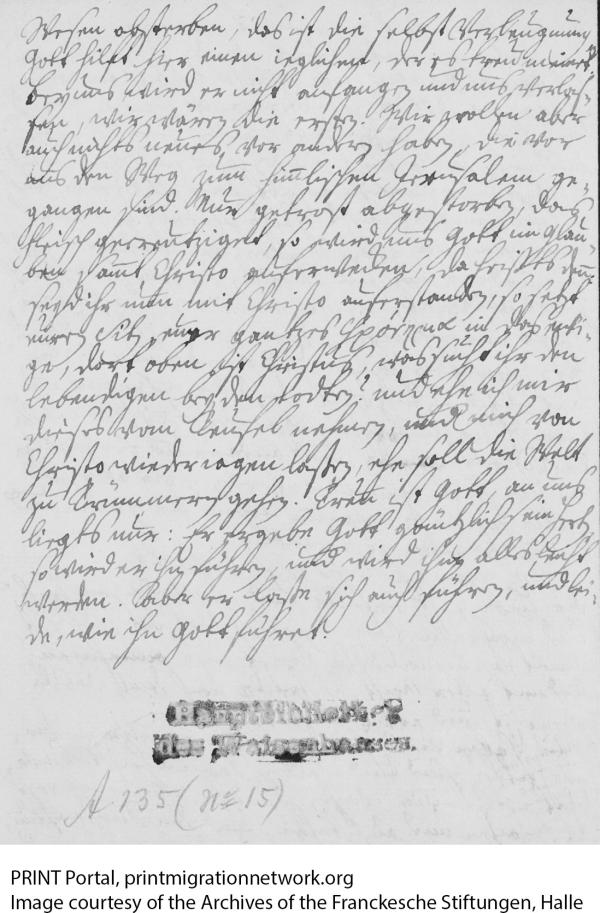 Wesen absterben, das ist die selbst Verleugnung
Gott hilfft hier einen ieglichen, der es treu meinet
bey uns wird er nicht anfangen und uns verlas-
sen, wir wären die ersten. Wir wollen aber
auch nichts neues vor andern haben, die vor
uns den Weg zum himlischen Jerusalem ge-
gangen sind. Nur getrost abgestorben, das
fleisch gecreutziget, so wird uns Gott im glau-
ben samt Christo auferwecken, da heists denn
seyd ihr nun mit Christo auferstanden, so setzt
euren Sitz, euer gantzes in das ewi-
ge, dort oben ist Christus, was sucht ihr den
lebendigen bey den todten? und ehe ich mir
dieses vom Teufel nehmen, und mich von
Christo wieder iagen lassen, ehe soll die Welt
zu Trümmern gehen. Treu ist Gott, an uns
liegts nur: Er ergebe Gott gäntzlich sein Hertz
so wird er ihn führen, und wird ihm alles leicht
werden. Aber er lasse sich auch führen, und lei-
de, wie ihn Gott führet.
Hauptbibliothek
des Waisenhauses.
A 135 (N= 15)
PRINT Portal, printmigrationnetwork.org
Image courtesy of the Archives of the Franckesche Stiftungen, Halle